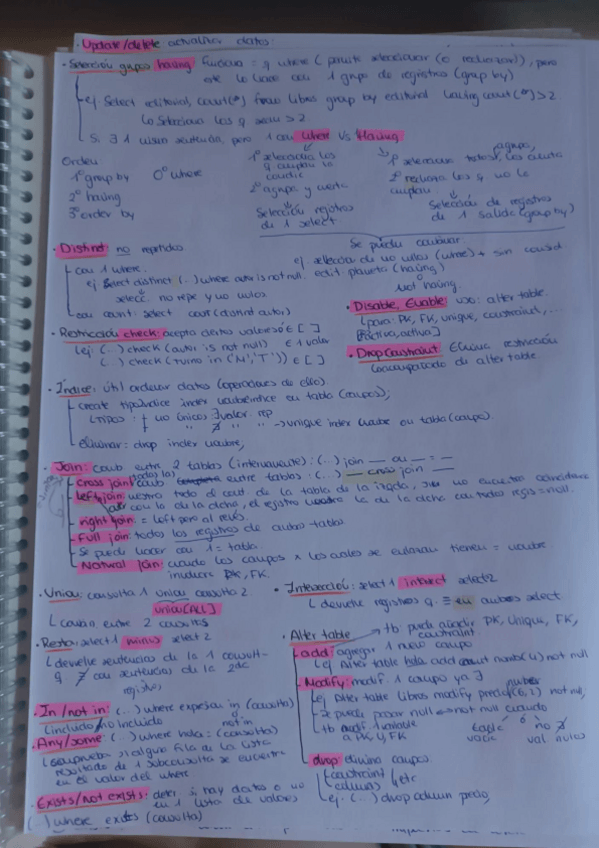 · Update/delete: actualizar datos.
· Selección grupos having: funciona = q where (permite seleccionar (o rechazar)), pero
este lo hace con 1 grupo de registros (group by)
ej. Select editorial, count(*) from libros group by editorial having count(*) > 2.
Lo selecciona los q sean > 2.
Si ∃ 1 misma sentencia, pero 1 con where vs Having:
Orden:
1º group by 0º where
2º having
3º order by
1º selecciona los
q cumplan la
condic
2º agrupa y cuenta
Selección registros
de 1 select.
agrupa,
1º selecciona todos, los cuenta
2º rechaza los q no lo
cumplan
Selección de registros
de 1 salida (group by)
Se pueden combinar.
ej. selección de no nulos (where) + sin consid
edit. planeta (having)
not having.
· Distinct: no repetidos
con 1 where.
ej Select distinct (...) where autor is not null.
selecc. no repe y no nulos
con count: select count (distinct autor)
· Disable, Enable: uso: alter table.
(para: PK, FK, unique, constraint, ...
· Restricción check: acepta ciertos valores ó ∈ [ ]
(ej: (...) check (autor is not null) ∈ 1 valor
(...) check (turno in ('M','T')) ∈ [ ]
· Drop Constraint: Elimina restricción
(acompañado de alter table
· Índice: útil ordenar datos (operaciones de ello).
create tipoíndice index nombreíndice on tabla (campos);
(tipos: no únicos ∃ valor rep
" ∄ " " → unique index nombre on tabla (campo).
eliminar: drop index nombre;
· Join: comb entre 2 tablas (internamente): (...) join __ on __ = __
cross join: comb entre tablas: (...) __ cross join __
left join: muestra todo el cont de la tabla de la izqda, si no encuentra coincidencia
con la de la dcha, el registro muestra la de la dcha con todos regis = null.
right join: = left pero al revés.
Full join: todos los registros de ambas tablas
Se puede hacer con 1 = tabla.
Natural join: cuando los campos x los cuales se enlazan tienen = nombre
involucra PK, FK.
· Union: consulta 1 union consulta 2
union [ALL]
combin entre 2 consultas
· Intersección: select 1 intersect select 2
devuelve registros q. ≡ en ambos select.
· Resta: select 1 minus select 2
devuelve sentencias de la 1 consult
q ∄ con sentencias de la 2da
registros
· Alter table → tb puede añadir PK, Unique, FK,
constraint
add: agregar 1 nuevo campo
ej Alter table tabla add cant number(4) not null
Modify: modif. 1 campo ya ∃
number
ej Alter table libros modify precio (6,2) not null;
Se puede pasar null ↔ not null cuando
tabla vacía ó no ∃ val nulos
tb modif. 1 variable
a PK y FK
· In / not in: (...) where expresion in (consulta)
incluido / no incluido not in
· Any/some: (...) where hola = (consulta)
comprueba si algun fila de la lista
resultado de 1 subconsulta se encuentra
en el valor del where
drop elimina campos.
constraint
column, etc
ej. (...) drop column precio;
· Exists/not exists: deter si hay datos o no
en 1 lista de valores
(...) where exists (consulta)